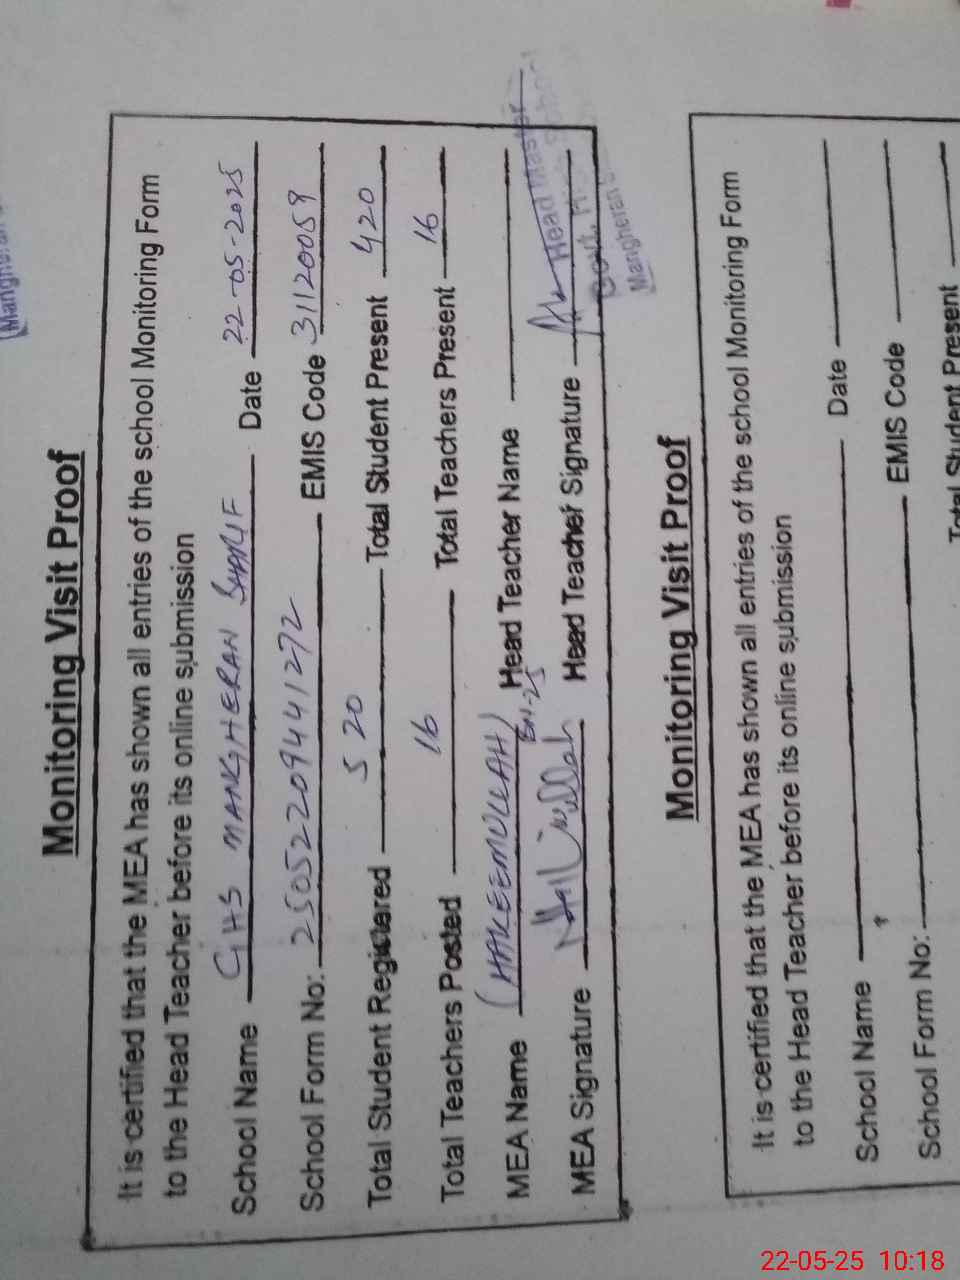 Monitoring Visit Proof
It is certified that the MEA has shown all entries of the school Monitoring Form
to the Head Teacher before its online submission
School Name GHS MANGHERAN SHARIF Date 22-05-2025
School Form No: 25052209441272 EMIS Code 31120059
Total Student Registered 520 Total Student Present 420
Total Teachers Posted 16 Total Teachers Present 16
MEA Name (HAKEEMULLAH) Head Teacher Name
MEA Signature Head Teacher Signature
Head Master
Govt. High School
Mangheran
Monitoring Visit Proof
It is certified that the MEA has shown all entries of the school Monitoring Form
to the Head Teacher before its online submission
School Name Date
School Form No: EMIS Code
Total Student Present
Mangheran
22-05-25 10:18